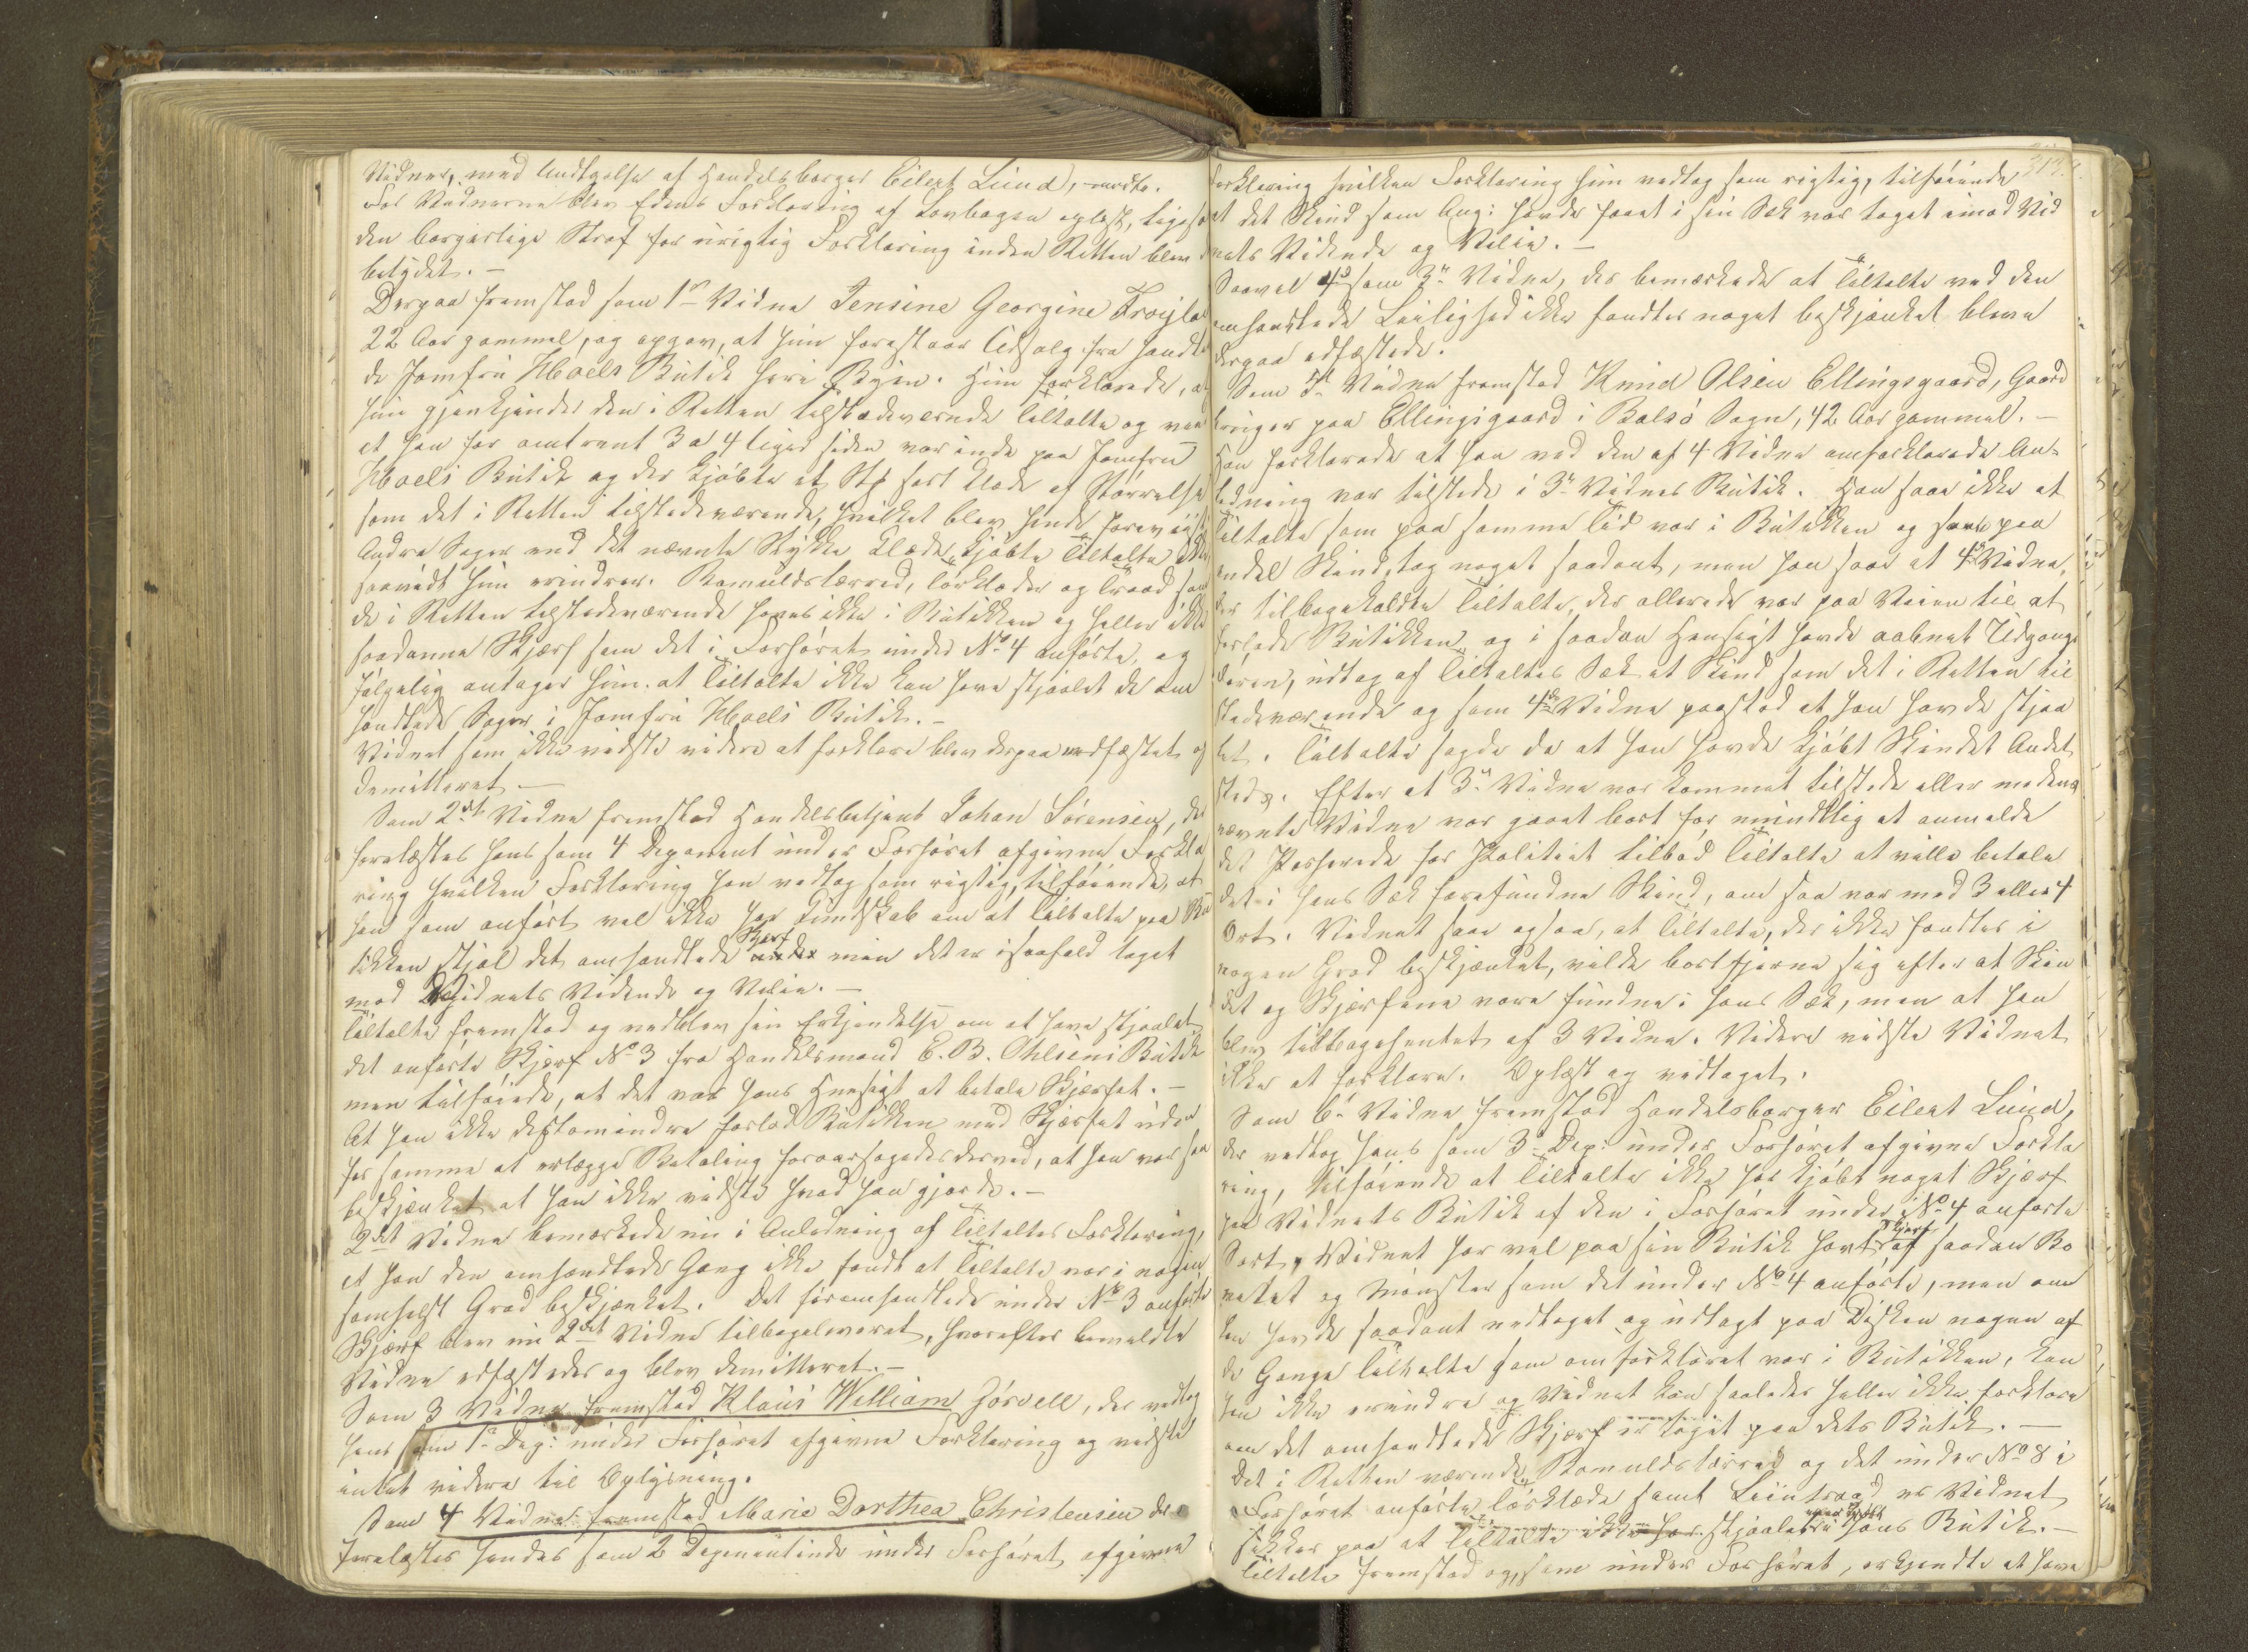 Vidner, med Undtgelse af Handelsborger Eilert Lund, mødte.
For Vidnerne blev Edens Forklaring af Lovbogen oplæst, ligesom
den borgerlige Straf for urigtig Forklaring inden Retten blev
betydet. -
Derpaa fremstod som 1ste Vidne Jensine Georgine
22 Aar gammel, og opgav, at hun forestaar Udsalg fra Handl
de Jomfru Hoels Butik heri Byen. Hun forklarede, at
hun gjenkjender den i Retten tilstedeværende Tiltalte og
at han for omtrent 3 a 4 Uger siden var inde paa Jomfru
Hoels Butik og der kjøbte et St. sort Klæde af Størrelse
som det i Retten tilstedeværende, hvilket blev hende forevist
Andre Sager end det nævnte Stykke Klæde kjøbte Tiltalte ikke
saavidt hun erindrer. Bomuldslærred, Tørklæder og Traad som
de i Retten tilstedeværende haves ikke i Butikken og heller ikke
saadanne Skjærf som det i Forhøret under No 4 anførte, og
følgelig antager hun at Tiltalte ikke kan have stjaalet de om
handlede Sager i Jomfru Hoels Butik. -
Vidnet som ikke vidste videre at forklare blev derpaa edfæstet og
demitteret. -
Som 2det Vidne fremstod Handelsbetjent Johan Sørensen, der
forelæstes hans som 4 Deponent under Forhøret afgivne Forkla
ring hvilken Forklaring han vedtog som rigtig, tilføiende, at
han som anført vel ikke har Kundskab om at Tiltalte paa Bu
tikken stjal det omhandlede Skjerf men det er isaafald taget
mod Vidnets Vidende og Villie. -
Tiltalte fremstod og vedblev sin Erkjendelse om at have stjaalet
det anførte Skjerf No 3 fra Handelsmand E. B. Ohlsens Butik
men tilføiede, at det var hans Hensigt at betale Skjærfet. -
At han ikke destomindre forlod Butikken med Skjærfet uden
for samme at erlægge Betaling foraarsagedes derved, at han var saa
beskjænket at han ikke vidste hvad han gjorde. -
2det Vidne bemærkede nu i Anledning af Tiltaltes Forklaring,
at han den omhandlede Gang ikke fandt at Tiltalte var i nogen
somhelst Grad beskjænket. Det foromhandlede under No 3 anførte
Skjærf blev nu 2det Vidne tilbageleveret, hvorefter bemeldte
Vidne edfæstedes og blev demitteret. -
Som 3 Vidne fremstod Klaus William Jørvell, der vedtog
hans som 1ste Dep: under Forhøret afgivne Forklaring og vidste
intet videre til Oplysning.
Som 4 Vidne fremstod Marie Dorthea Christensen der
forelæstes hendes som 2 Deponentinde under Forhøret afgivne
Forklaring hvilken Forklaring hun vedtog som rigtig, tilføiende,
at det Skind som Ang: havde faaet i sin Sæk var taget imod Vid
nets Vidende og Villie. -
Saavel 4de som 3die Vidne, der bemærkede at Tiltalte ved den
omhandlede Leilighed ikke fandtes noget beskjænket bleve
derpaa edfæstede.
Som 5te Vidne fremstod Knud Olsen Ellingsgaard, Gaard
bruger paa Ellingsgaard i Bolsø Sogn, 42 Aar gammel. -
Han forklarede at han ved den af 4 Vidne omforklarede An-
ledning var tilstede i 3die Vidnes Butik. Han saae ikke at
Tiltalte som paa samme Tid var i Butikken og saae paa
endel Skind, tog noget saadant, men han saae at 4de Vidne,
der tilbagekaldte Tiltalte, der allerede var paa Veien til at
forlade Butikken og i saadan Hensigt havde aabnet Udgangs
døren, udtog af Tiltaltes Sæk et Skind som det i Retten til
stedeværende og som 4de Vidne paastod at han havde stjaa
let. Tiltalte sagde da at han havde kjøbt Skindet Andet
steds. Efter at 3die Vidne var kommet tilstede eller medens
nævnte Vidne var gaaet bort for mundtlig at anmelde
det Passerede for Politiet tilbød Tiltalte at ville betale
det i hans Sæk forefundne Skind, om saa var med 3 eller 4
Ort. Vidnet saae ogsaa, at Tiltalte, der ikke fandtes i
nogen Grad beskjænket, vilde bortfjerne sig efter at Skin
det og Skjærfene vare fundne i hans Sæk, men at han
blev tilbagehentet af 3 Vidne. Videre vidste Vidnet
ikke at forklare. Oplæst og vedtaget.
Som 6te Vidne fremstod Handelsborger Eilert Lund,
der vedtog hans som 3die Dep: under Forhøret afgivne Forkla
ring, tilføiende at Tiltalte ikke har kjøbt noget Skjærf
paa Vidnets Butik af den i Forhøret under No 4 anførte
Sort, Vidnet har vel paa sin Butik havt Skjerf af saadan
og Mønster som det under No 4 anførte, men om
han havde saadant nedtaget og udlagt paa Disken nogen af
de Gange Tiltalte som omforklaret var i Butikken, kan
han ikke erindre og Vidnet kan saaledes heller ikke forklare
om det omhandlede Skjærf er taget paa dets Butik. -
Det i Retten værende Bomuldslærred og det under No 8 i
Forhøret anførte Tørklæde samt Liintraad er Vidnet
sikker paa at Tiltalte ikke har stjaalet i hans Butik. -
Tiltalte fremstod og, som under Forhøret, erkjendte at have